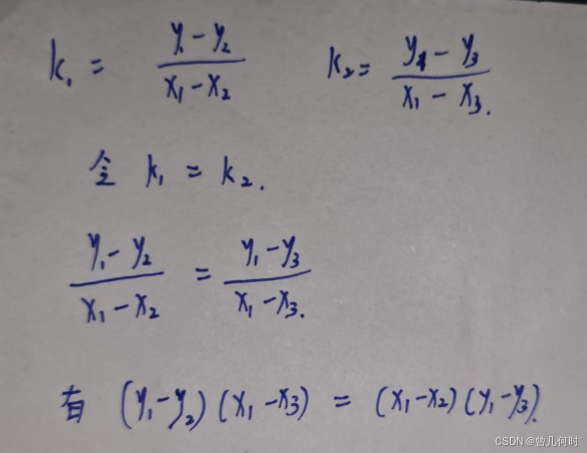 k₁ = (y₁ - y₂)/(x₁ - x₂)    k₂ = (y₁ - y₃)/(x₁ - x₃).
令 k₁ = k₂.
(y₁ - y₂)/(x₁ - x₂) = (y₁ - y₃)/(x₁ - x₃).
有 (y₁ - y₂)(x₁ - x₃) = (x₁ - x₂)(y₁ - y₃).
CSDN @曾几何时`